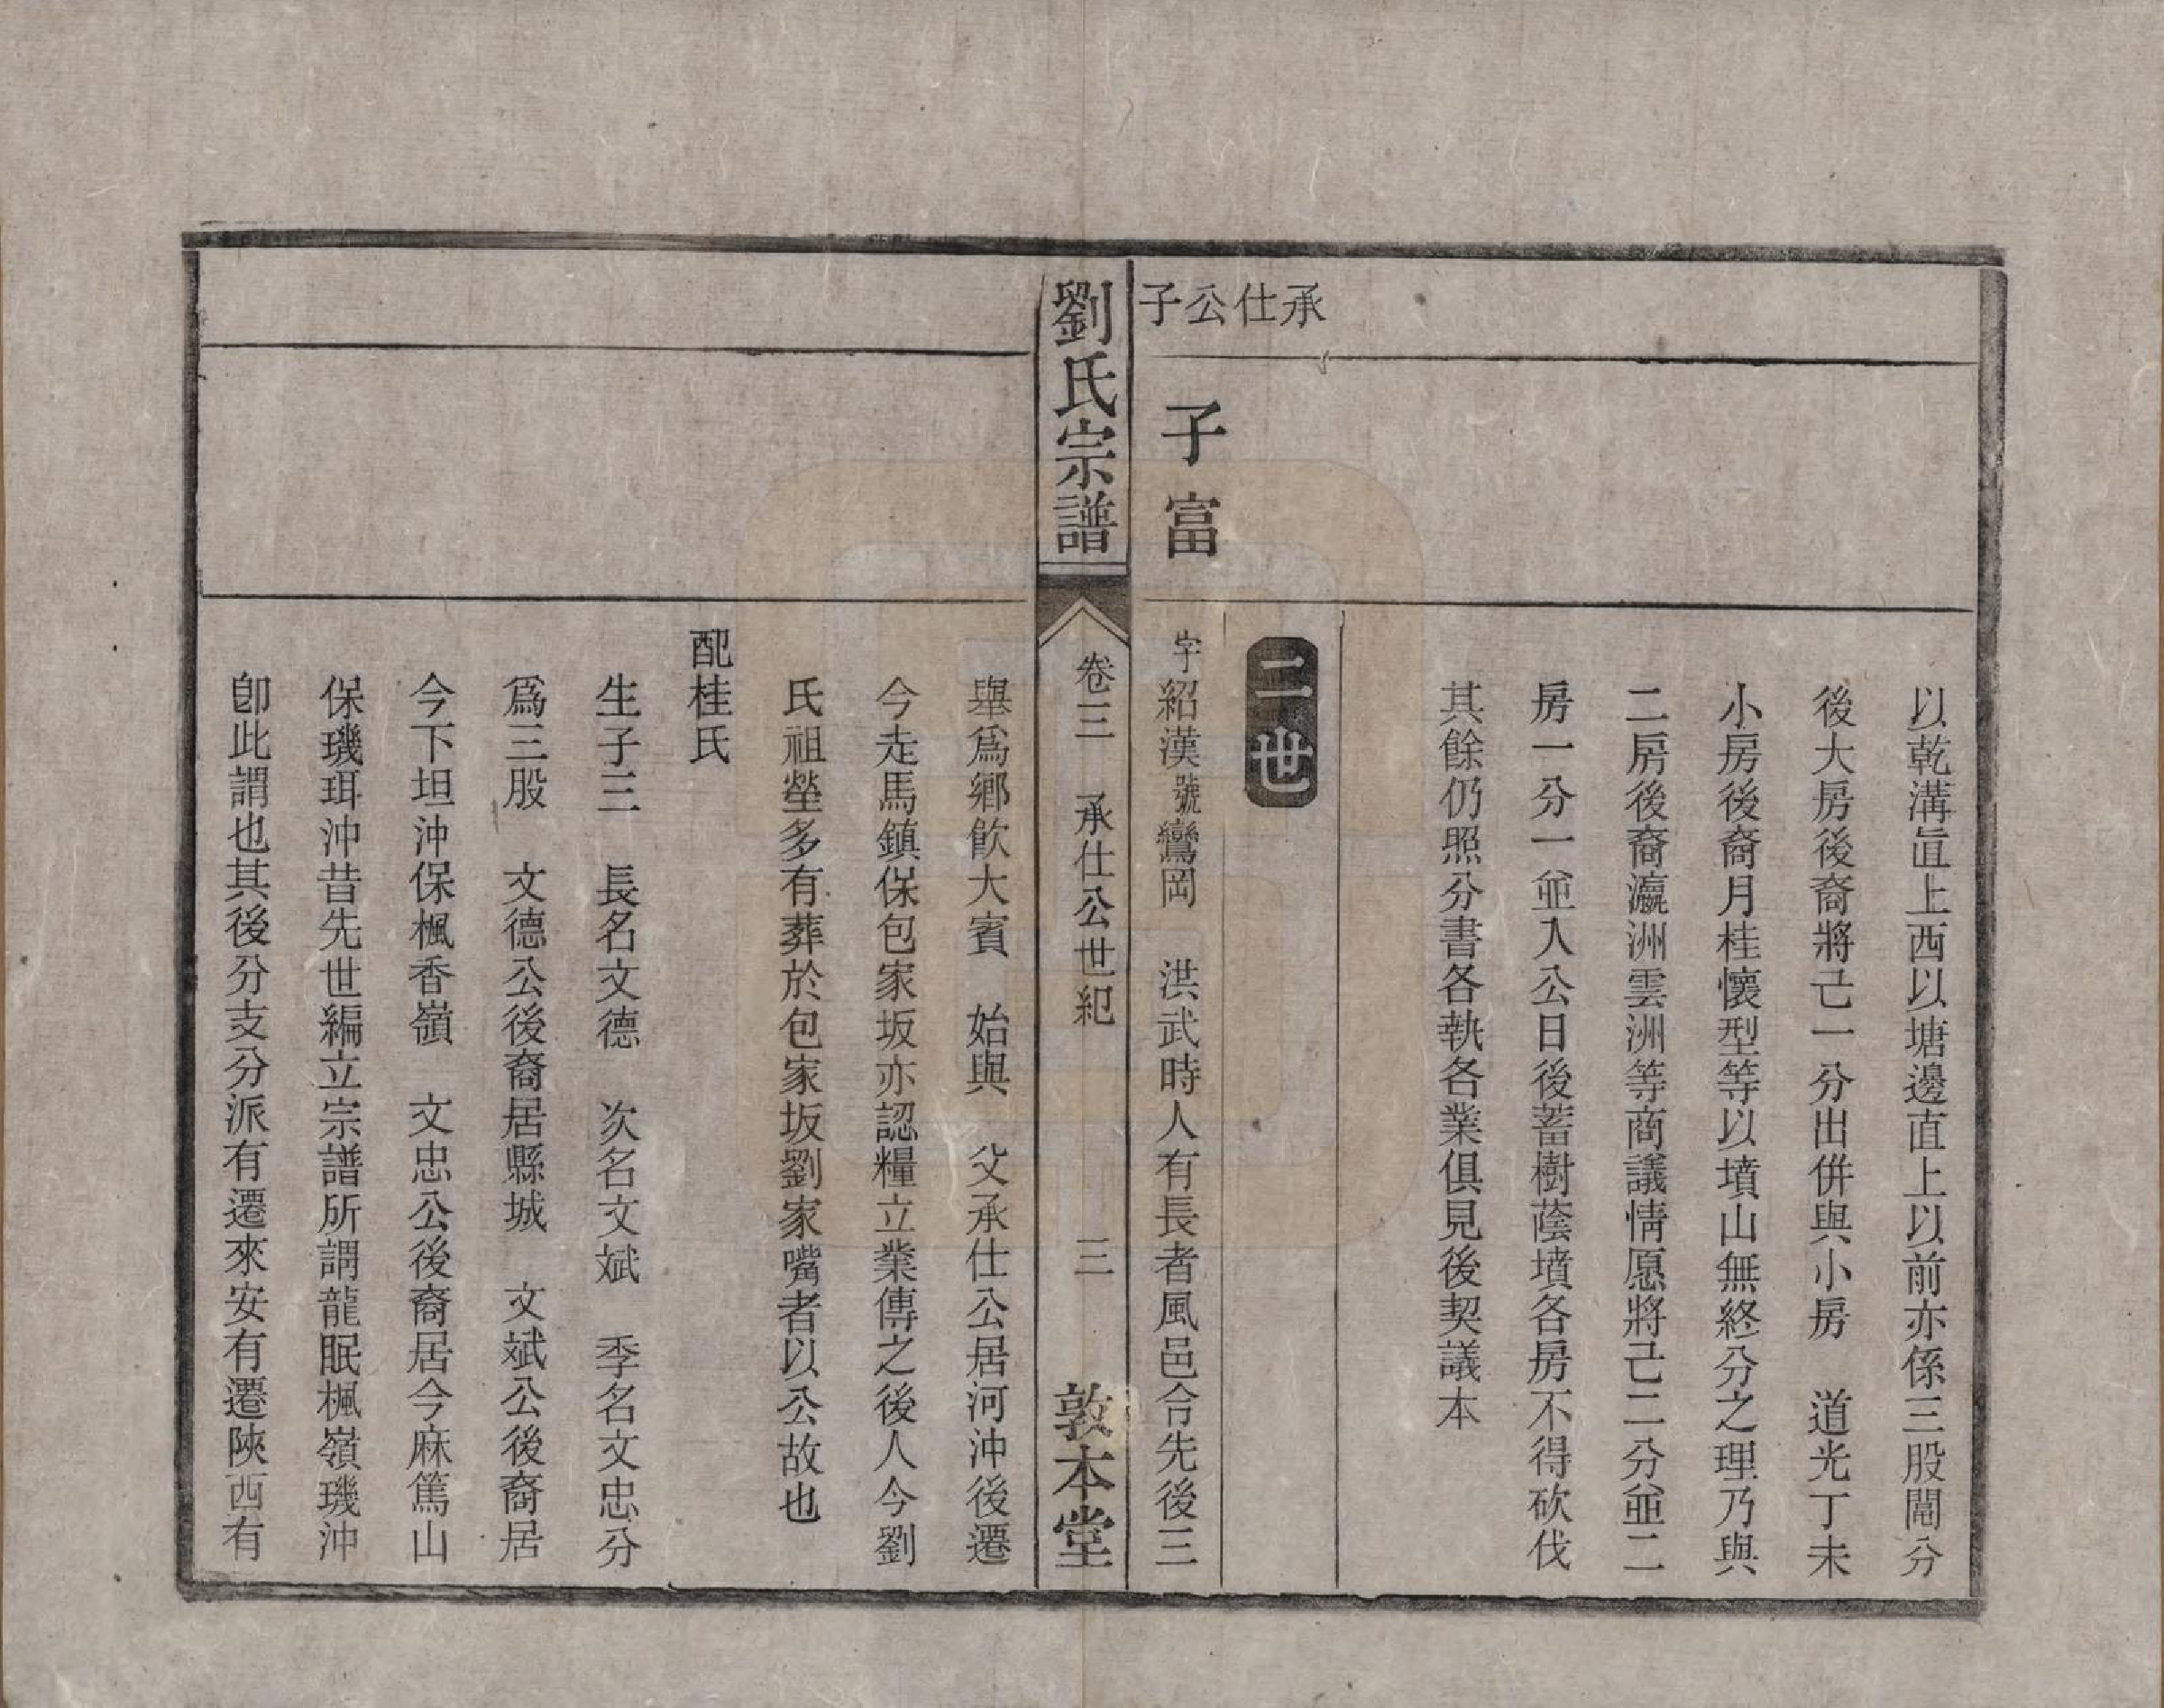 以乾溝直上西以塘邊直上以前亦係三股鬮分
後大房後裔將己一分出併與小房　道光丁未
小房後裔月桂懷型等以墳山無終分之理乃與
二房後裔瀛洲雲洲等商議情愿將己二分並二
房一分一並入公日後蓄樹蔭墳各房不得砍伐
其餘仍照分書各執各業俱見後契議本
二世
承仕公子
子富
字紹漢號鸞岡　洪武時人有長者風邑合先後三
劉氏宗譜
卷三　承仕公世紀　三
敦本堂
舉爲鄉飲大賓　始與　父承仕公居河沖後遷
今走馬鎮保包家坂亦認糧立業傳之後人今劉
氏祖塋多有葬於包家坂劉家嘴者以公故也
配桂氏
生子三　長名文德　次名文斌　季名文忠分
爲三股　文德公後裔居縣城　文斌公後裔居
今下坦沖保楓香嶺　文忠公後裔居今麻篤山
保璣珥沖昔先世編立宗譜所謂龍眠楓嶺璣沖
卽此謂也其後分支分派有遷來安有遷陝西有